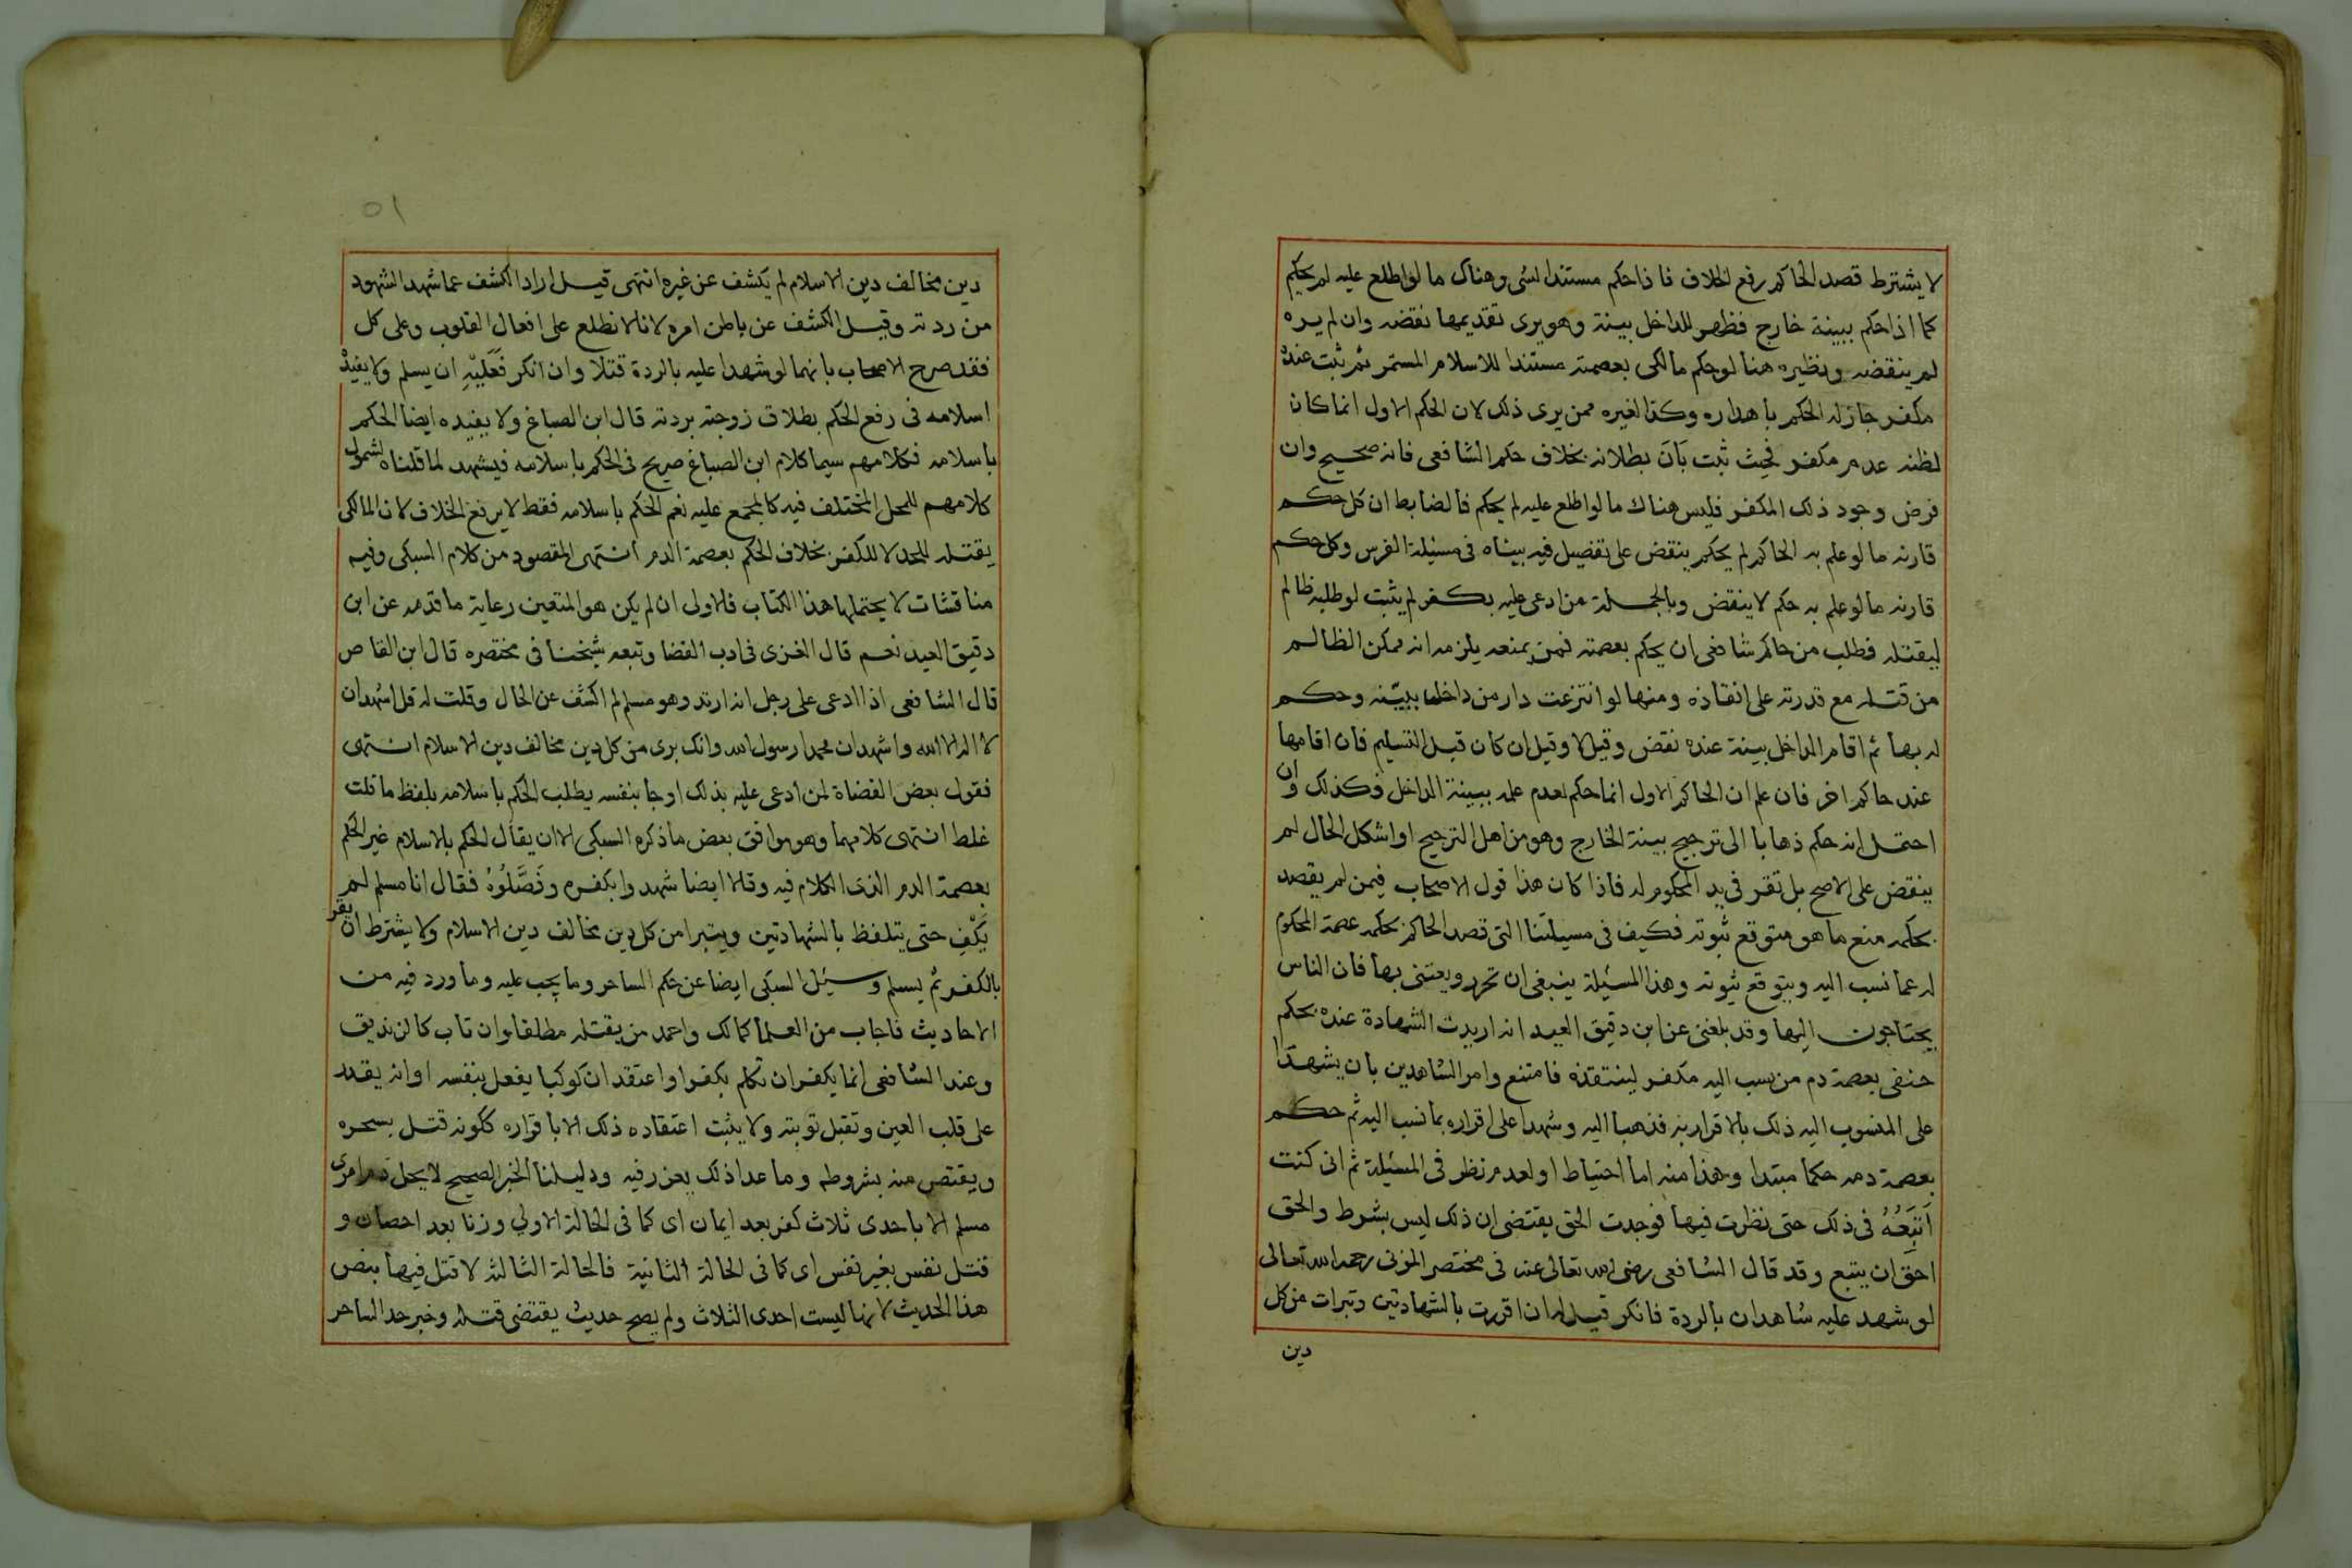 لا يشترط قصد الحاكم رفع الخلاف فاذا حكم مستندا لشى وهناك ما لو اطلع عليه لم يحكم
كما اذا حكم ببينة خارج فظهر للداخل بينة وهو يرى تقديمها نقضه وان لم يره
لم ينقضه ونظيره هنا لو حكم مالكى بعصمته مستندا للاسلام المستمر ثم ثبت عنده
مكفر جاز له الحكم باهداره وكذا لغيره ممن يرى ذلك لان الحكم الاول انما كان
لظنه عدم مكفر فحيث ثبت بَانَ بطلانه بخلاف حكم الشافعى فانه صحيح وان
فرض وجود ذلك المكفر فليس هناك ما لو اطلع عليه لم يحكم فالضابط ان كل حكم
قارنه ما لو علم به الحاكم لم يحكم ينقض على تفصيل فيه بيناه فى مسئلة الفرس وكل حكم
قارنه ما لو علم به حكم لا ينقض وبالجملة من ادعى عليه بكفر لم يثبت لو طلبه ظالم
ليقتله فطلب من حاكم شافعى ان يحكم بعصمته فمن يمنعه يلزمه انه ممكن الظالم
من قتله مع قدرته على انقاذه ومنها لو انتزعت دار من داخلها ببيّنه وحكم
له بها ثم اقام الداخل بينة عنده نقض وقيل لا وقيل ان كان قبل التسليم فان اقامها
عند حاكم اخر فان علم ان الحاكم الاول انما حكم لعدم علمه ببينة الداخل فكذلك وان
احتمل انه حكم ذهابا الى ترجيح بينة الخارج وهو من اهل الترجيح او اشكل الحال لم
ينقض على الاصح بل تقر فى يد المحكوم له فاذا كان هذا قول الاصحاب فيمن لم يقصد
بحكمه منع ما هو متوقع ثبوته فكيف فى مسيلتنا التى قصد الحاكم بحكمه عصمة المحكوم
له عما نسب اليه ويتوقع ثبوته وهذا المسئلة ينبغى ان تحرر ويعتنى بها فان الناس
يحتاجون اليها وقد بلغنى عن ابن دقيق العيد انه اريدت الشهادة عنده بحكم
حنفى بعصمة دم من نسب اليه مكفر لينتقذه فامتنع وامر الشاهدين بان يشهدا
على المنسوب اليه ذلك بالاقرار به فذهبا اليه وشهدا على اقراره بما نسب اليه ثم حكم
بعصمة دمه حكما مبتدا وهذا منه اما احتياط او لعدم نظر فى المسئلة ثم انى كنت
اَتبَعُهُ فى ذلك حتى نظرت فيها فوجدت الحق يقتضى ان ذلك ليس بشرط والحق
احق ان يتبع وقد قال الشافعى رضى الله تعالى عنه فى مختصر المزنى رحمه الله تعالى
لو شهد عليه شاهدان بالردة فانكر قيل له ان اقررت بالشهادتين وتبرات من كل
دين
٥١
دين مخالف دين الاسلام لم يكشف عن غيره انتهى قيل اراد الكشف عما شهد الشهود
من ردته وقيل الكشف عن باطن امره لانا لا نطلع على افعال القلوب وعلى كل
فقد صرح الاصحاب بانهما لو شهدا عليه بالردة قتلا وان انكر فَعَلَيْهِ ان يسلم ولا يفيدْ
اسلامه فى رفع الحكم بطلاق زوجته بردته قال ابن الصباغ ولا يفيده ايضا الحكم
باسلامه فكلامهم سيما كلام ابن الصباغ صريح فى الحكم باسلامه فيشهد لما قلناه لشمول
كلامهم للمحل المختلف فيه كالمجمع عليه نعم الحكم باسلامه فقط لا يرفع الخلاف لان المالكى
يقتله للحد لا للكفر بخلاف الحكم بعصمة الدم انتهى المقصود من كلام السبكى وفيه
مناقشات لا يحتملها هذا الكتاب فالاولى ان لم يكن هو المتعين رعاية ما قدمه عن ابن
دقيق العيد نعم قال الغزى فى ادب القضا وتبعه شيخنا فى مختصره قال ابن القاص
قال الشافعى اذا ادعى على رجل انه ارتد وهو مسلم لم اكشف عن الحال وقلت له قل اشهد ان
لا اله الا الله واشهد ان محمدا رسول الله وانك برى من كل دين مخالف دين الاسلام انتهى
فقول بعض القضاة لمن ادعى عليه بذلك او جا بنفسه يطلب الحكم باسلامه بلفظ ما قلت
غلط انتهى كلامهما وهو موافق بعض ما ذكره السبكى الا ان يقال الحكم بالاسلام غير الحكم
بعصمة الدم الذى الكلام فيه وقالا ايضا شهدوا بكفره وفَصَّلُوهُ فقال انا مسلم لم
يَكْفِ حتى يتلفظ بالشهادتين ويتبرا من كل دين مخالف دين الاسلام ولا يشترط ان يقر
بالكفر ثم يسلم وسئل السبكى ايضا عن حكم الساحر وما يجب عليه وما ورد فيه من
الاحاديث فاجاب من العلما كمالك واحمد من يقتله مطلقا وان تاب كالزنديق
وعند الشافعى انما يكفر ان تكلم بكفر او اعتقد ان كوكبا يفعل بنفسه او انه يقدر
على قلب العين وتقبل توبته ولا يثبت اعتقاده ذلك الا باقراره ككونه قتل بسحره
ويقتص منه بشروطه وما عدا ذلك يعزر فيه ودليلنا الخبر الصحيح لا يحل دم امرى
مسلم الا باحدى ثلاث كفر بعد ايمان اى كما فى الحالة الاولي وزنا بعد احصان و
قتل نفس بغير نفس اى كما فى الحالة الثانية فالحالة الثالثة لا قتل فيها بنص
هذا الحديث لانها ليست احدى الثلاث ولم يصح حديث يقتضى قتله وخبر حد الساحر